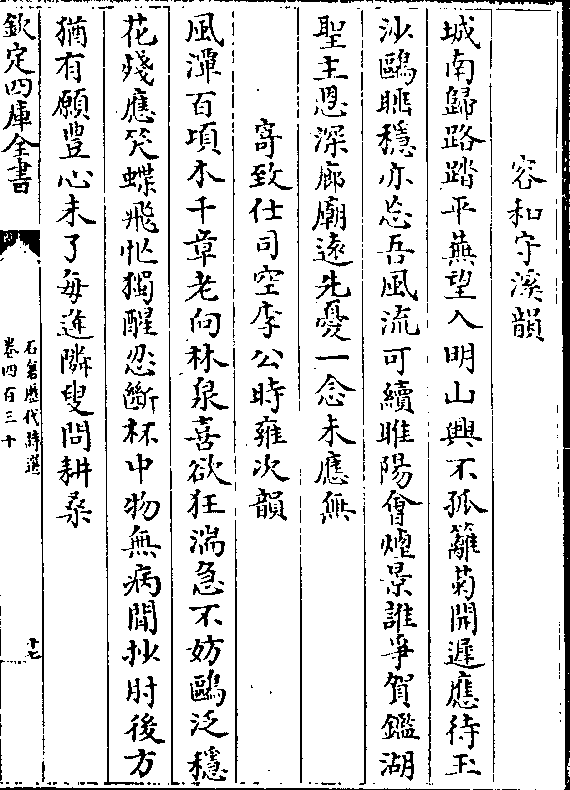 容和守溪韻
城南歸路踏平蕪望入明山興不孤籬菊開遲應待玉
沙鷗眠穩亦忘吾風流可續睢陽會煙景誰爭賀鑑湖
聖主恩深廊廟遠先憂一念未應無
寄致仕司空李公時雍次韻
風潭百頃木千章老向林泉喜欲狂湍急不妨鷗泛穩
花殘應笑蝶飛忙獨醒忍斷杯中物無病閒抄肘後方
猶有願豐心未了每逢隣叟問耕桑
欽定四庫全書
石倉歷代詩選
卷四百三十
十七